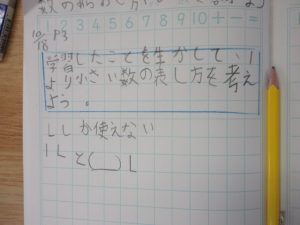 数の表し方
1 2 3 4 5 6 7 8 9 10 + - =
10/18 P3
学習したことを生かして、1
より小さい数の表し方を考え
よう。
LしかI使えない
1Lと(__)L